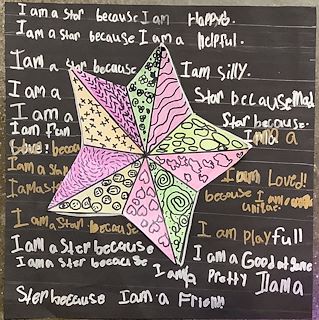 I am a Star because I am Happy.
I am a Star because I am a helpful.
I am a Star because I am silly.
I am a Star because mad
I am a Star because.
I am Fun I am a
because
I am a Star I am Loved!!
I am a Star because I am a
I am a Star because I am playfull
I am a Star because I am a Good at game
I am a Star because I am a Pretty
Star because I am a Friend